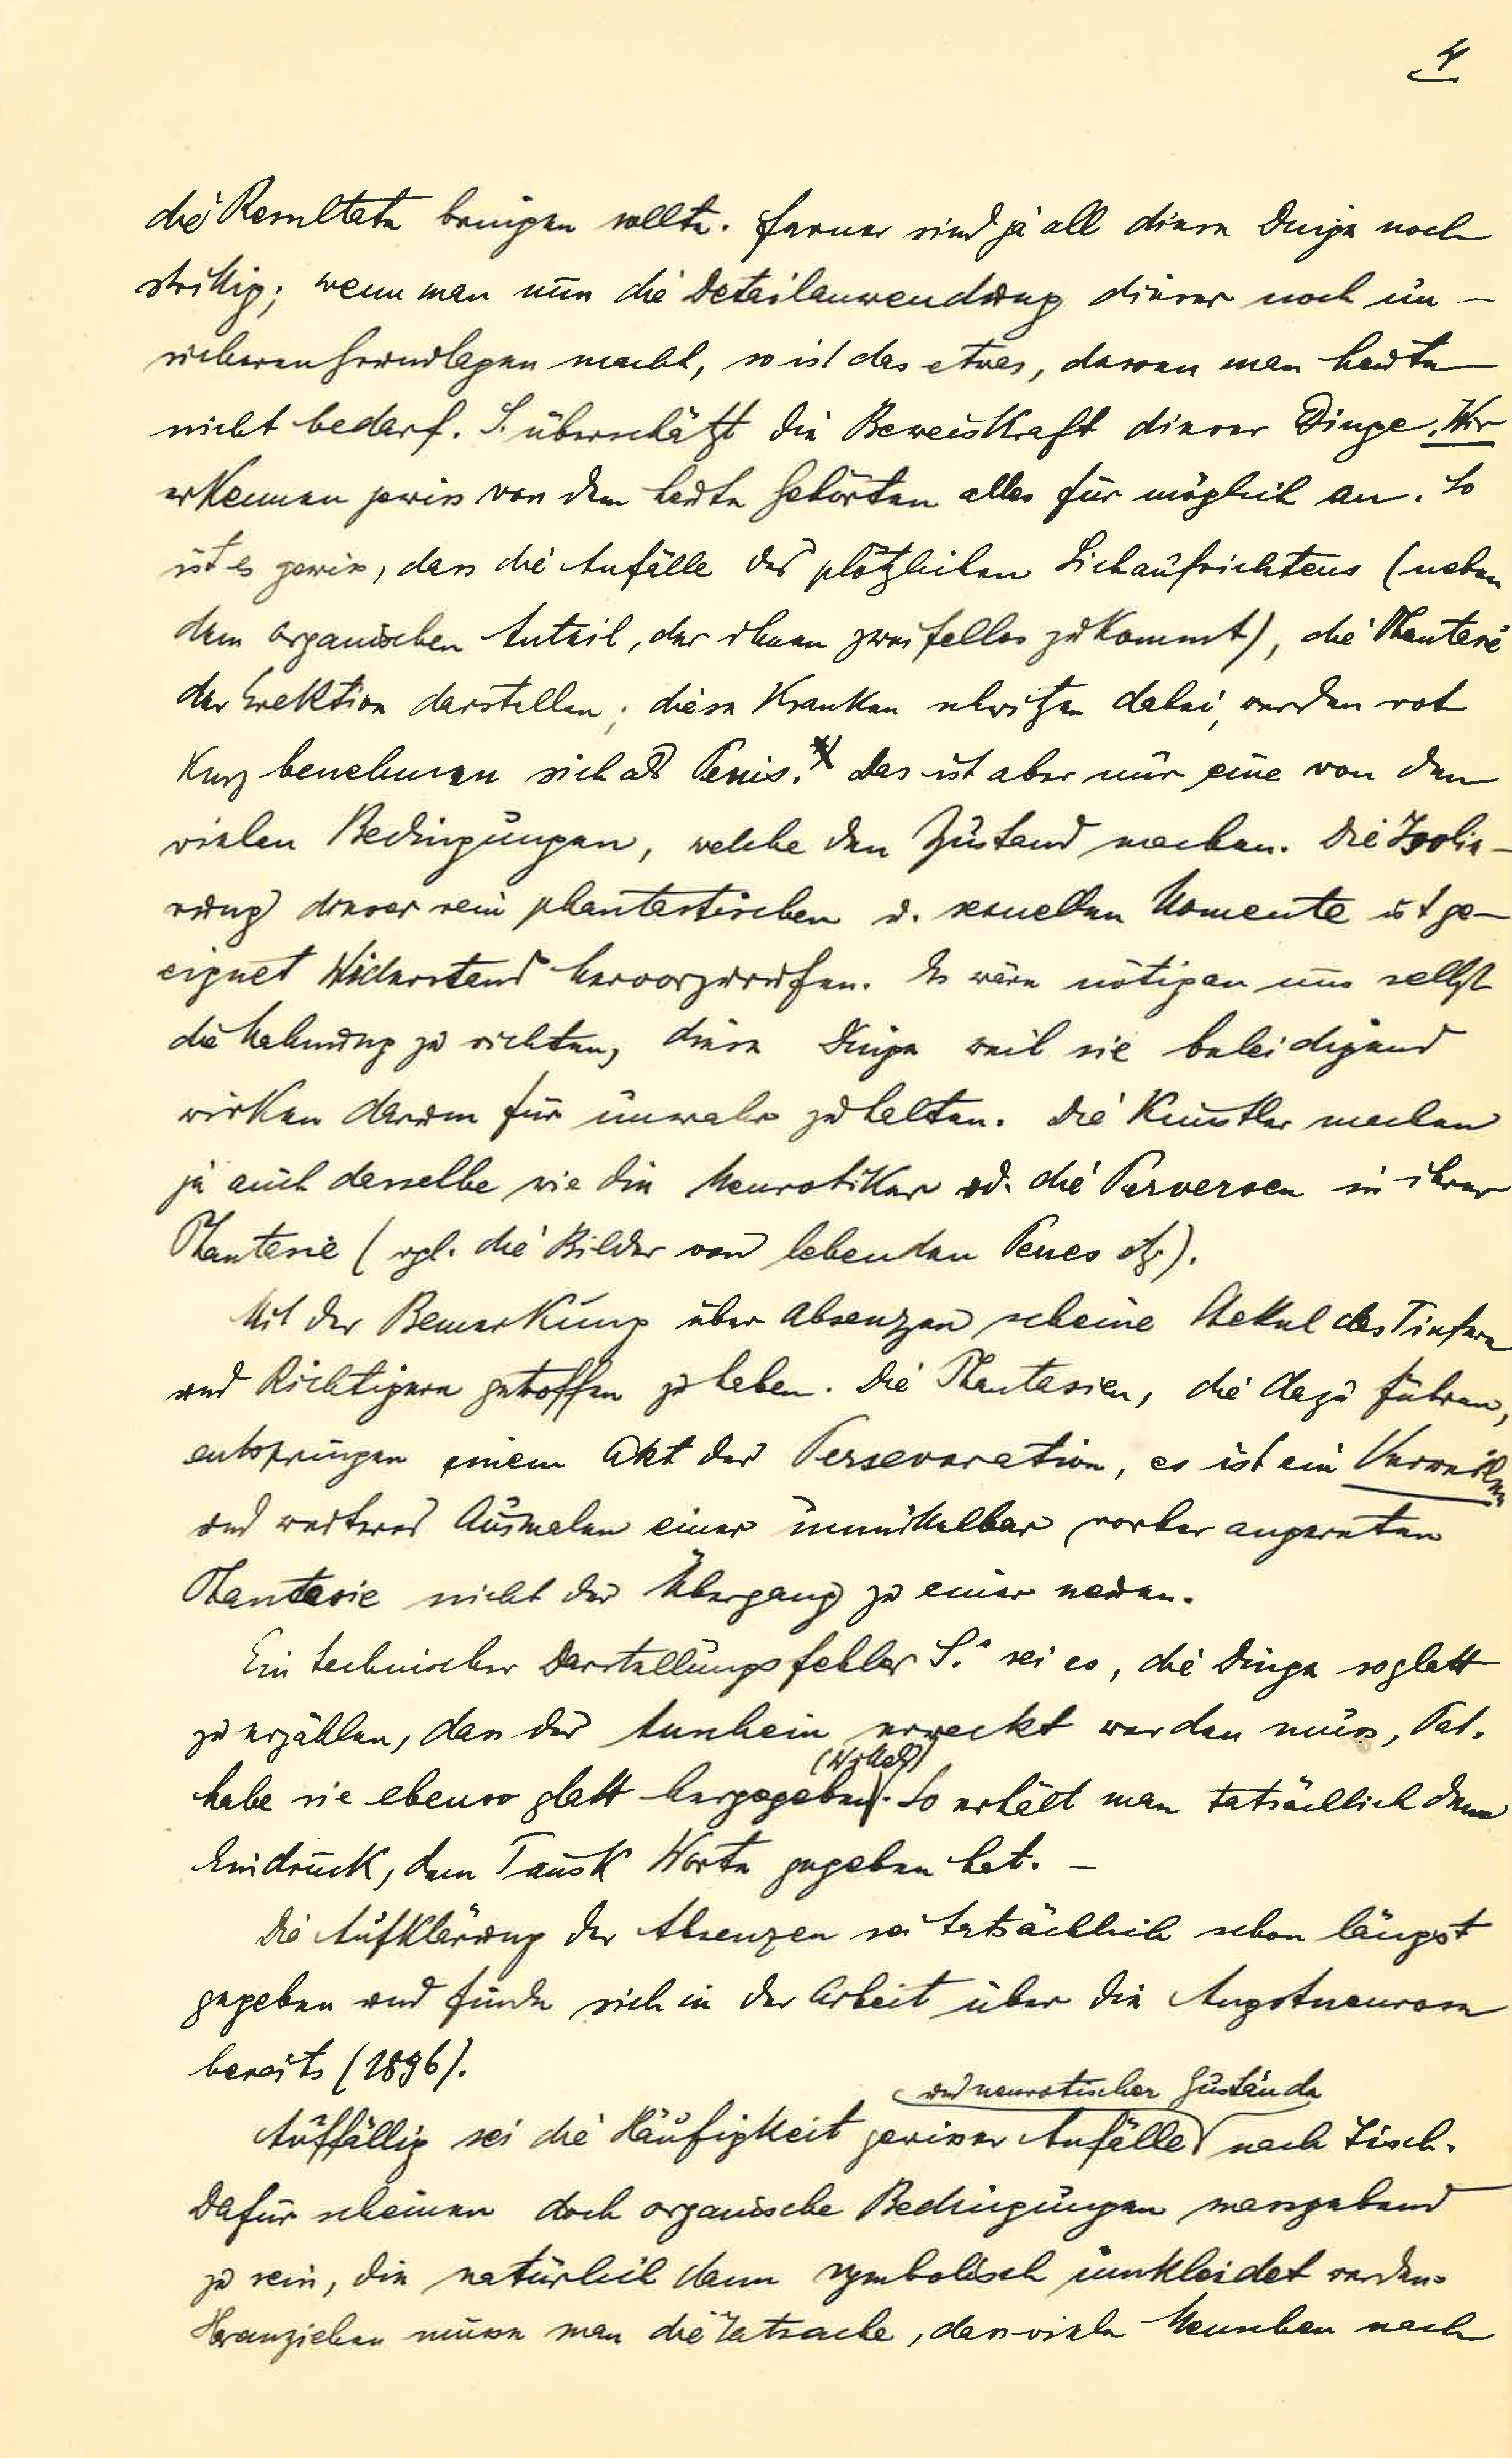 4
die Resultate bringen sollte. Ferner sind ja all diese Dinge noch
strittig; wenn man nun die Detailanwendung dieser noch un-
sicheren Grundlagen macht, so ist das etwas, dessen man heute
nicht bedarf. S. überschätzt die Beweiskraft dieser Dinge. Wir
erkennen gewiss von dem heute Gehörten alles für möglich an. So
ist es gewiss, dass die Anfälle des plötzlichen Sichaufrichtens (neben
dem organischen Anteil, der ihnen zweifellos zukommt), die Phantasie
der Erektion darstellen; diese Kranken schwitzen dabei, werden rot
kurz benehmen sich als Penis. Das ist aber nur eine von den
vielen Bedingungen, welche den Zustand machen. Die Isolie-
rung dieser rein phantastischen u. sexuellen Momente ist ge-
eignet Widerstand hervorzurufen. Es wäre nötig an uns selbst
die Mahnung zu richten, diese Dinge weil sie beleidigend
wirken darum für unwahr zu halten. Die Künstler machen
ja auch dasselbe wie die Neurotiker od. die Perversen in ihrer
Phantasie (vgl. die Bilder von lebenden Penes etz).
Mit der Bemerkung über Absenzen scheine Stekel das Tiefere
und Richtigere getroffen zu haben. Die Phantasien, die dazu führen,
entspringen einem Akt der Perseveration, es ist ein Verweilen
und weiteres Ausmalen einer unmittelbar vorher angeregten
Phantasie nicht der Übergang zu einer neuen.
Ein technischer Darstellungsfehler S.s sei es, die Dinge so glatt
zu erzählen, dass der Anschein erweckt werden muss, Pat.
habe sie ebenso glatt hergegeben (Wittels). So erhält man tatsächlich den
Eindruck, dem Tausk Worte gegeben hat. –
Die Aufklärung der Absenzen sei tatsächlich schon längst
gegeben und finde sich in der Arbeit über die Angstneurose
bereits (1896).
Auffällig sei die Häufigkeit gewisser Anfälle und neurotischer Zustände nach Tisch.
Dafür scheinen doch organische Bedingungen massgebend
zu sein, die natürlich dann symbolisch umkleidet werden.
Heranziehen müsse man die Tatsache, dass viele Menschen nach